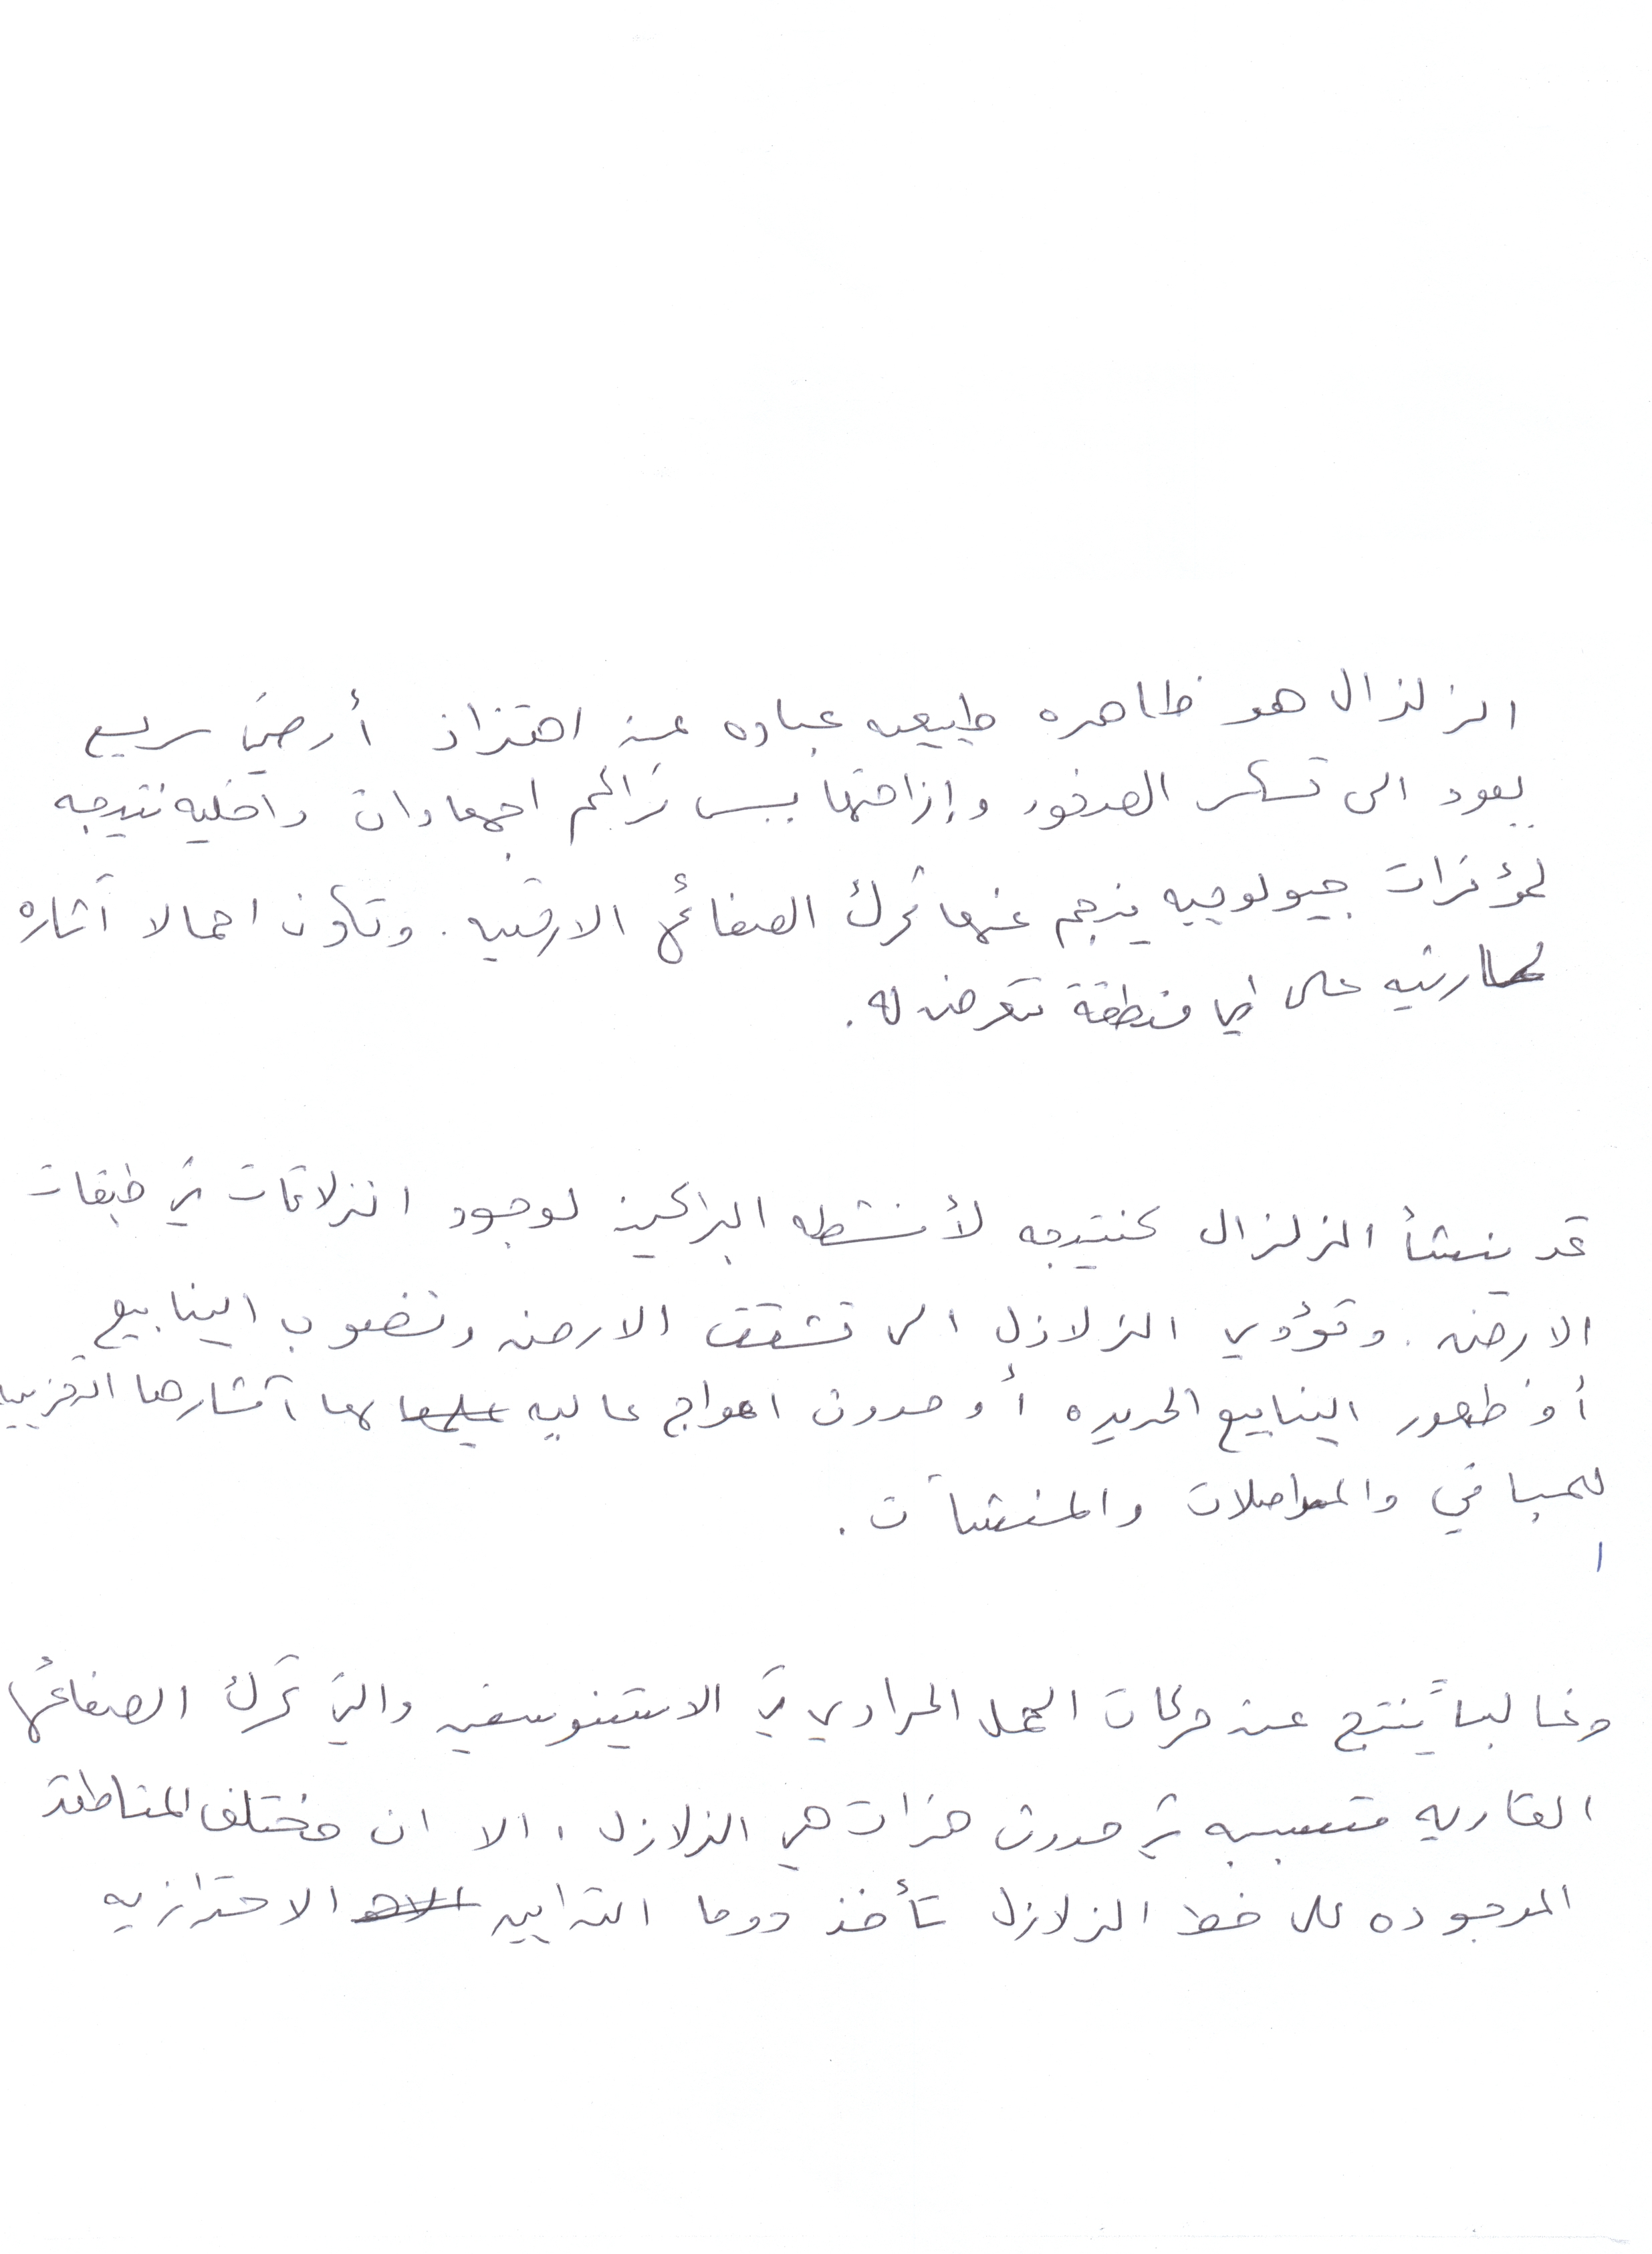 الزلزال هو ظاهره طبيعيه عباره عن اهتزاز أرضي سريع
يعود الى تكسر الصخور وإزاحتها بسبب تراكم اجهادات داخليه نتيجه
لمؤثرات جيولوجيه ينجم عنها تحرك الصفائح الارضيه. وتكون اجمالا آثاره
كارثيه على اي منطقة تتعرض له.
قد ينشأ الزلزال كنتيجه لأنشطه البراكين لوجود انزلاقات في طبقات
الارض. وتؤدي الزلازل الى تشقق الارض ونضوب الينابيع
أو ظهور الينابيع الجديده أو حدوث امواج عاليه لها آثارها التخريبيه
للمباني والمواصلات والمنشآت.
وغالباً ينتج عن حركات الحمل الحراري في الاستينوسفير والتي تحرك الصفائح
القاريه متسببه في حدوث هزات هي الزلازل، الا ان مختلف المناطق
الموجوده على خط الزلازل تأخذ دوما التدابير الاحترازيه